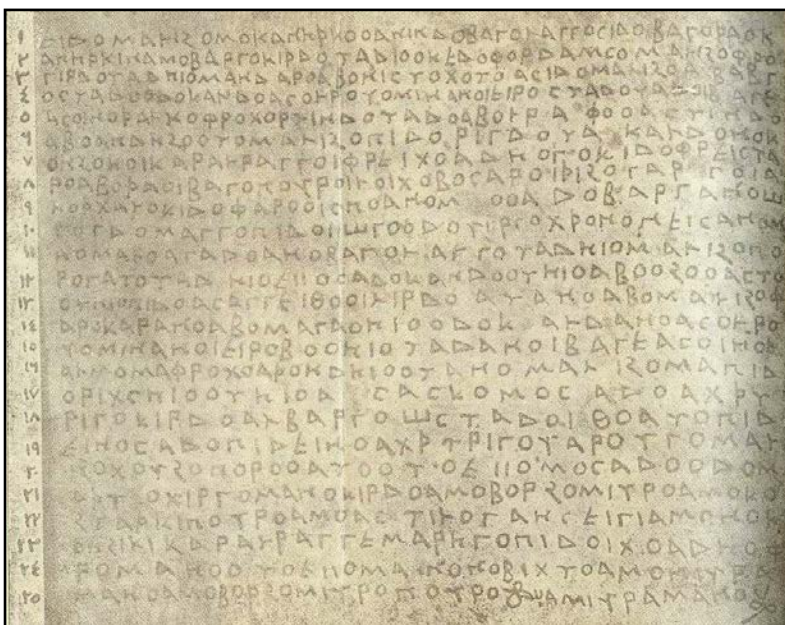 ۱ ΕΙΔΟΜΑΛΙΖΟΜΟΚΑΝΗϷΚΟΟΑΝΙΝΔΟΒΑΓΟΛΑΓΓΟΣΙΔΟΙΒΑΓΟϷΑΟΚ
۲ ΑΝΗϷΚΙΝΑΜΟΒΑΡΓΟΚΙΡΔΟΤΑΔΙΟΟΚΕΔΟΦΟΡΔΑΜΣΟΜΑΛΙΖΟΦΡΟ
۳ ΓΙΡΔΟΤΑΔΗΙΟΜΑΝΔΑΡΟΑΒΟΝΙΣΤΟΧΟΤΟΑΣΙΔΟΜΑΛΙΖΟΑΒΑΒΓ
۴ ΟΣΤΑΔΟΟΔΟΚΑΛΔΟΑΣΟΛΡΟΥΟΜΙΝΑΝΟΕΙΡΟΣΤΑΔΟΤΑΔΟΙΒΑΓΕ
۵ ΑΣΟΙΝΟϷΑΛΜΟΦΡΟΧΟΡΤΙΝΔΟΤΑΔΟΑΒΟΛΡΑΦΟΟΑΣΤΙΝΔΟ
۶ ΑΒΟΑΝΔΗΖΟΟΤΟΜΑΛΙΖΟΠΙΔΟΡΙΓΔΟΤΑΔΟΚΑΛΔΟΝΟΚ
۷ ΟΝΖΟΚΟΙΚΑΡΑΛΡΑΓΓΟΙΦΡΕΙΧΟΑΔΗΟΓΟΚΙΔΟΦΡΕΙΣΤΑ
۸ ΡΟΑΒΟϷΑΟΙΒΑΓΟΠΟΥΡΟΙΛΟΙΧΟΒΟΣΑΡΟΙϷΙΖΟΓΑΡΓΟΙΑ
۹ ΛΟϷΧΑΛΟΚΙΔΟΦΑΡΟΟΙΣΠΟΑΝΟΜΟ ΟΟΑΔΟΒΑΡΓΑΝΟΩΣ
۱۰ ΟΓΔΟΜΑΓΓΟΠΙΔΟΙΩΓΟΟΔΟΥΙΡΣΟΧϷΟΝΟΝΕΙΣΑΝΟΜ
۱۱ ΜΑΛΟΑΓΑΔΟΑΒΟΒΑΓΟΛΑΓΓΟΤΑΔΗΙΟΜΑΛΙΖΟΠΟ
۱۲ ΡΟΓΑΤΟΤΑΔΗΙΟΕΙΙΟΣΑΔΟΚΑΝΔΟΟΤΗΙΟΑΒΟΟΖΟΟΑΣΤΟ
۱۳ ΟΤΗΙΟΠΙΔΟΑΣΑΓΓΕΙΘΟΟΙΛΙΡΔΟΑΤΑΝΟΑΒΟΜΑΛΙΖΟΦ
۱۴ ΑΡΟΚΑΡΑΝΟΑΒΟΜΑΓΑΟΗΙΟΟΔΟΚΑΛΔΑΝΟΑΣΟΛΡΟ
۱۵ ΥΟΜΙΝΑΝΟΕΙΡΟΒΟΟΗΙΟΤΑΔΑΝΟΙΒΑΓΕΑΣΟΙΝΟϷ
۱۶ ΑΛΜΟΜΑΦΡΟΧΟΑϷΟΝΔΗΙΟΟΤΑΝΟΜΑΛΙΖΟΜΑΠΙΔ
۱۷ ΟΡΙΧΣΗΙΟΟΤΗΙΟΑΣΑΣΚΟΜΟΣΑΔΟΑΧϷΤ
۱۸ ΡΙΓΟΚΙΡΔΟΑΛΒΑΡΓΟΩΣΤΑΔΟΙΘΟΑΤΟΠΙΔ
۱۹ ΕΙΝΟΣΑΔΟΠΙΔΕΙΝΟΑΧϷΤΡΙΓΟΥΑΡΟΥΓΟΜΑΛ
۲۰ ΙΖΟΧΟΥΖΟΠΟΡΟΟΑΤΟΟΤΟΕΙΙΟΜΟΣΑΔΟΟΔΟΜ
۲۱ ΑΣΤΟΧΙΡΓΟΜΑΝΟΚΙΡΔΟΑΜΟΒΟΡΖΟΜΙΥΡΟΑΜΟΚΟ
۲۲ ΖΓΑϷΚΙΠΟΥΡΟΑΜΟΑΣΤΙΛΟΓΑΝΣΕΙΓΙΑΜΟΝΟΚ
۲۳ ΟΝΖΙΚΙΚΑΡΑΛΡΑΓΓΕΜΑΡΗΓΟΠΙΔΟΙΧΟΑΔΗΟΦ
۲۴ ΡΟΜΑΝΟΟΤΟΕΙΙΟΜΑΝΟΝΟΒΙΧΤΟΑΜΟΜΙΥΡΑ
۲۵ ΜΑΝΟΑΜΟΒΟΡΖΟΜΙΥΡΟΠΟΥΡΟ ΑΜΙΥΡΑΜΑΝΟ